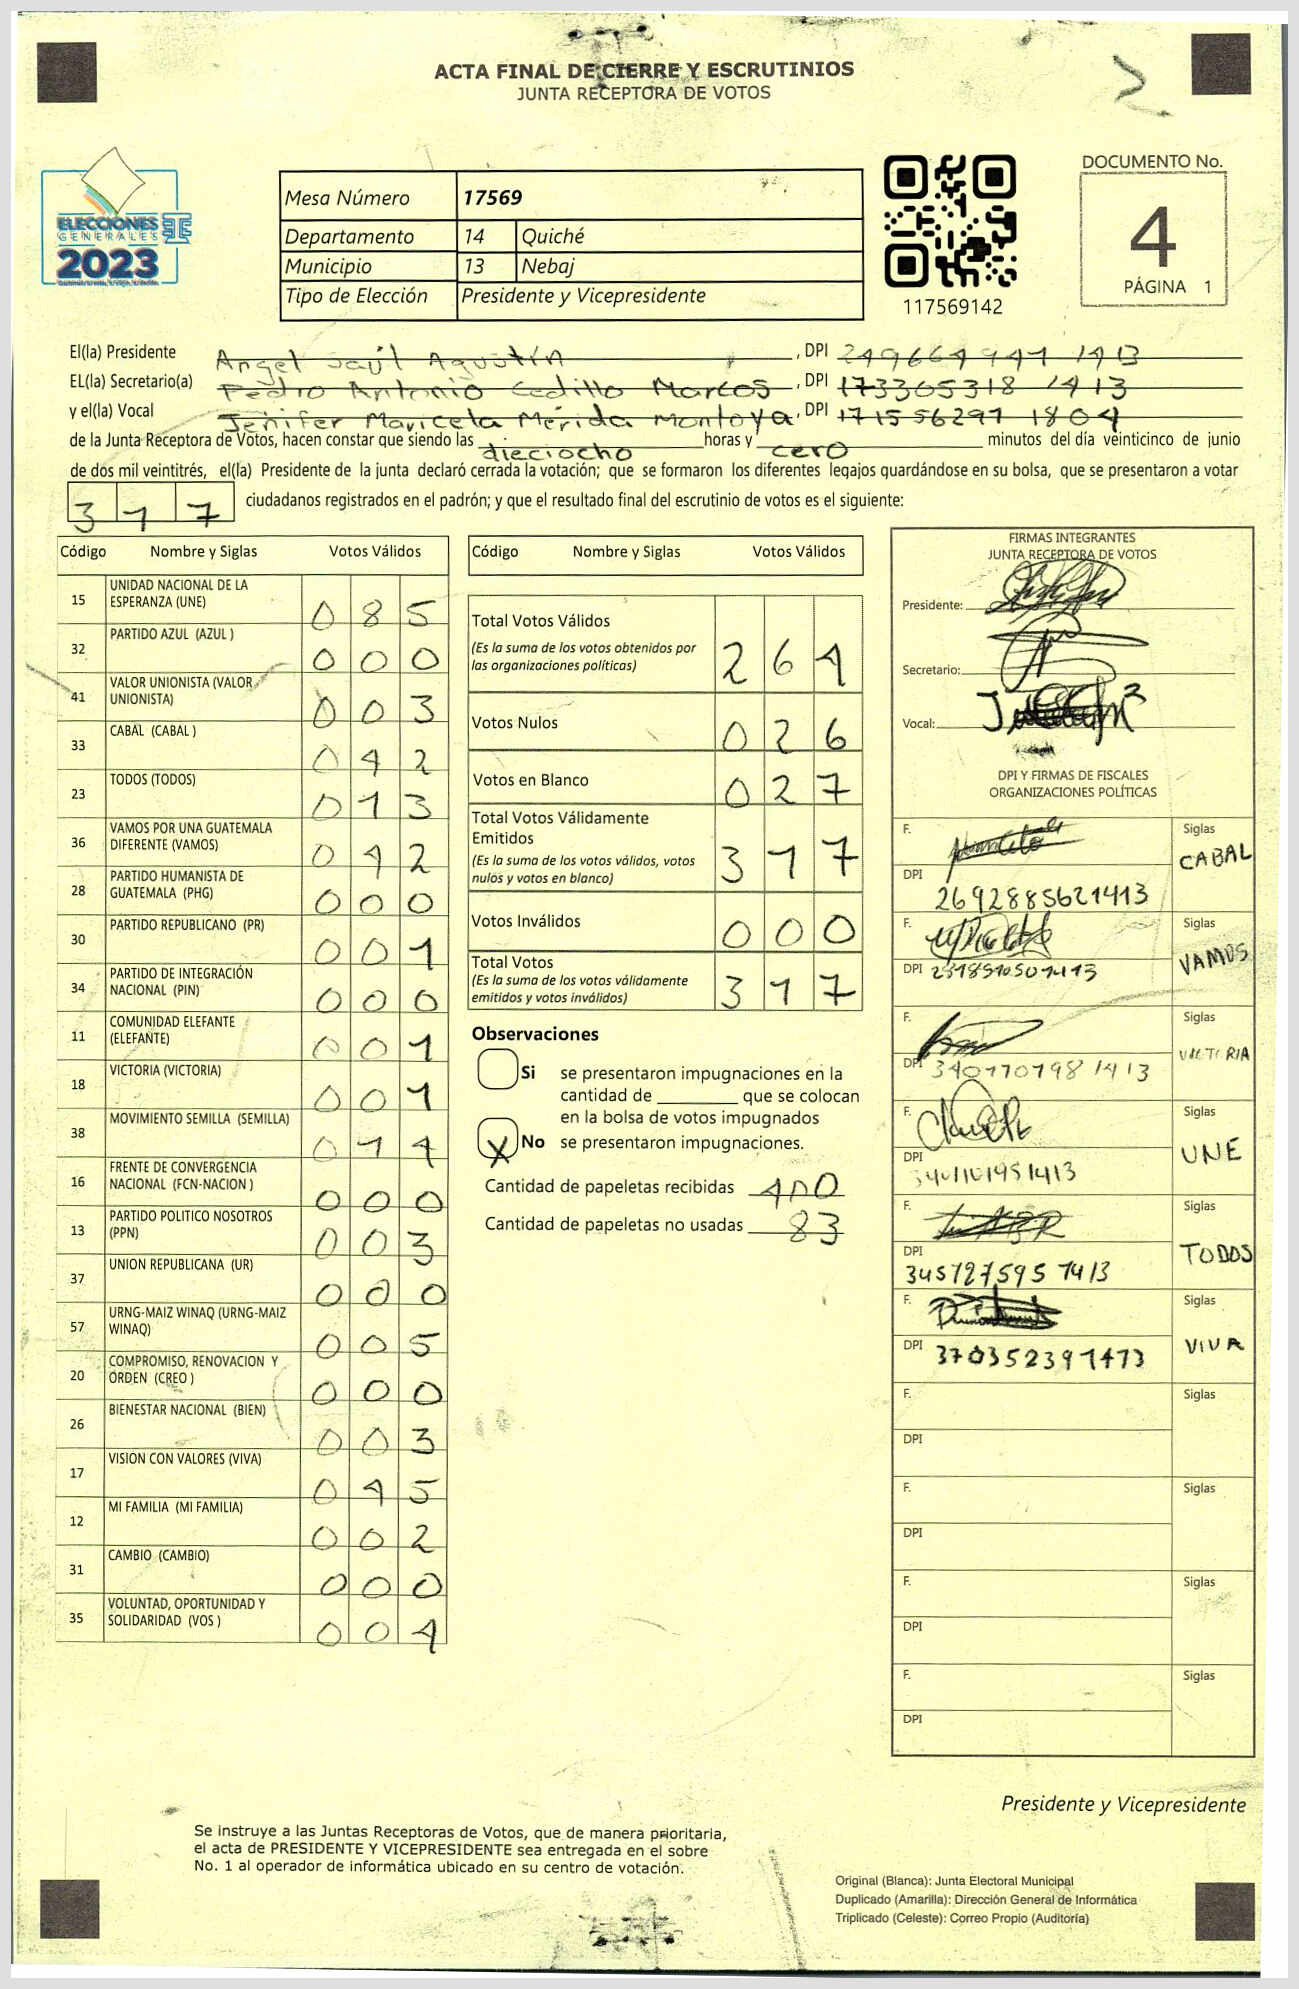 ACTA FINAL DE CIERRE Y ESCRUTINIOS
JUNTA RECEPTORA DE VOTOS
ELECCIONES
GENERALES
2023
Mesa Número 17569
Departamento 14 Quiché
Municipio 13 Nebaj
Tipo de Elección Presidente y Vicepresidente
117569142
DOCUMENTO No.
4
PÁGINA 1
El(la) Presidente Angel Saúl Agustín, DPI 249664947 1413
EL(la) Secretario(a) Pedro Antonio Cedillo Marcos, DPI 173305318 1413
y el(la) Vocal Jenifer Maricela Mérida Montoya, DPI 171556297 1804
de la Junta Receptora de Votos, hacen constar que siendo las dieciocho horas y cero minutos del día veinticinco de junio
de dos mil veintitrés, el(la) Presidente de la junta declaró cerrada la votación; que se formaron los diferentes legajos quardándose en su bolsa, que se presentaron a votar
317 ciudadanos registrados en el padrón; y que el resultado final del escrutinio de votos es el siguiente:
Código Nombre y Siglas Votos Válidos
15 UNIDAD NACIONAL DE LA ESPERANZA (UNE) 085
32 PARTIDO AZUL (AZUL ) 000
41 VALOR UNIONISTA (VALOR UNIONISTA) 003
33 CABAL (CABAL ) 042
23 TODOS (TODOS) 013
36 VAMOS POR UNA GUATEMALA DIFERENTE (VAMOS) 042
28 PARTIDO HUMANISTA DE GUATEMALA (PHG) 000
30 PARTIDO REPUBLICANO (PR) 001
34 PARTIDO DE INTEGRACIÓN NACIONAL (PIN) 000
11 COMUNIDAD ELEFANTE (ELEFANTE) 001
18 VICTORIA (VICTORIA) 001
38 MOVIMIENTO SEMILLA (SEMILLA) 014
16 FRENTE DE CONVERGENCIA NACIONAL (FCN-NACION ) 000
13 PARTIDO POLITICO NOSOTROS (PPN) 003
37 UNION REPUBLICANA (UR) 000
57 URNG-MAIZ WINAQ (URNG-MAIZ WINAQ) 005
20 COMPROMISO, RENOVACION Y ORDEN (CREO ) 000
26 BIENESTAR NACIONAL (BIEN) 003
17 VISION CON VALORES (VIVA) 045
12 MI FAMILIA (MI FAMILIA) 002
31 CAMBIO (CAMBIO) 000
35 VOLUNTAD, OPORTUNIDAD Y SOLIDARIDAD (VOS ) 004
Código Nombre y Siglas Votos Válidos
Total Votos Válidos 264
(Es la suma de los votos obtenidos por
las organizaciones políticas)
Votos Nulos 026
Votos en Blanco 027
Total Votos Válidamente
Emitidos 317
(Es la suma de los votos válidos, votos
nulos y votos en blanco)
Votos Inválidos 000
Total Votos 317
(Es la suma de los votos válidamente
emitidos y votos inválidos)
Observaciones
Si se presentaron impugnaciones en la
cantidad de ________ que se colocan
en la bolsa de votos impugnados
X No se presentaron impugnaciones.
Cantidad de papeletas recibidas 400
Cantidad de papeletas no usadas 83
FIRMAS INTEGRANTES
JUNTA RECEPTORA DE VOTOS
Presidente:
Secretario:
Vocal:
DPI Y FIRMAS DE FISCALES
ORGANIZACIONES POLÍTICAS
F. Siglas CABAL
DPI 2692885621413
F. Siglas VAMOS
DPI
F. Siglas VICTORIA
DPI 340770798 1413
F. Siglas UNE
DPI 3401101951413
F. Siglas TODOS
DPI 345727595 1413
F. Siglas VIVA
DPI 3703523971413
F. Siglas
DPI
F. Siglas
DPI
F. Siglas
DPI
F. Siglas
DPI
Presidente y Vicepresidente
Se instruye a las Juntas Receptoras de Votos, que de manera prioritaria,
el acta de PRESIDENTE Y VICEPRESIDENTE sea entregada en el sobre
No. 1 al operador de informática ubicado en su centro de votación.
Original (Blanca): Junta Electoral Municipal
Duplicado (Amarilla): Dirección General de Informática
Triplicado (Celeste): Correo Propio (Auditoría)